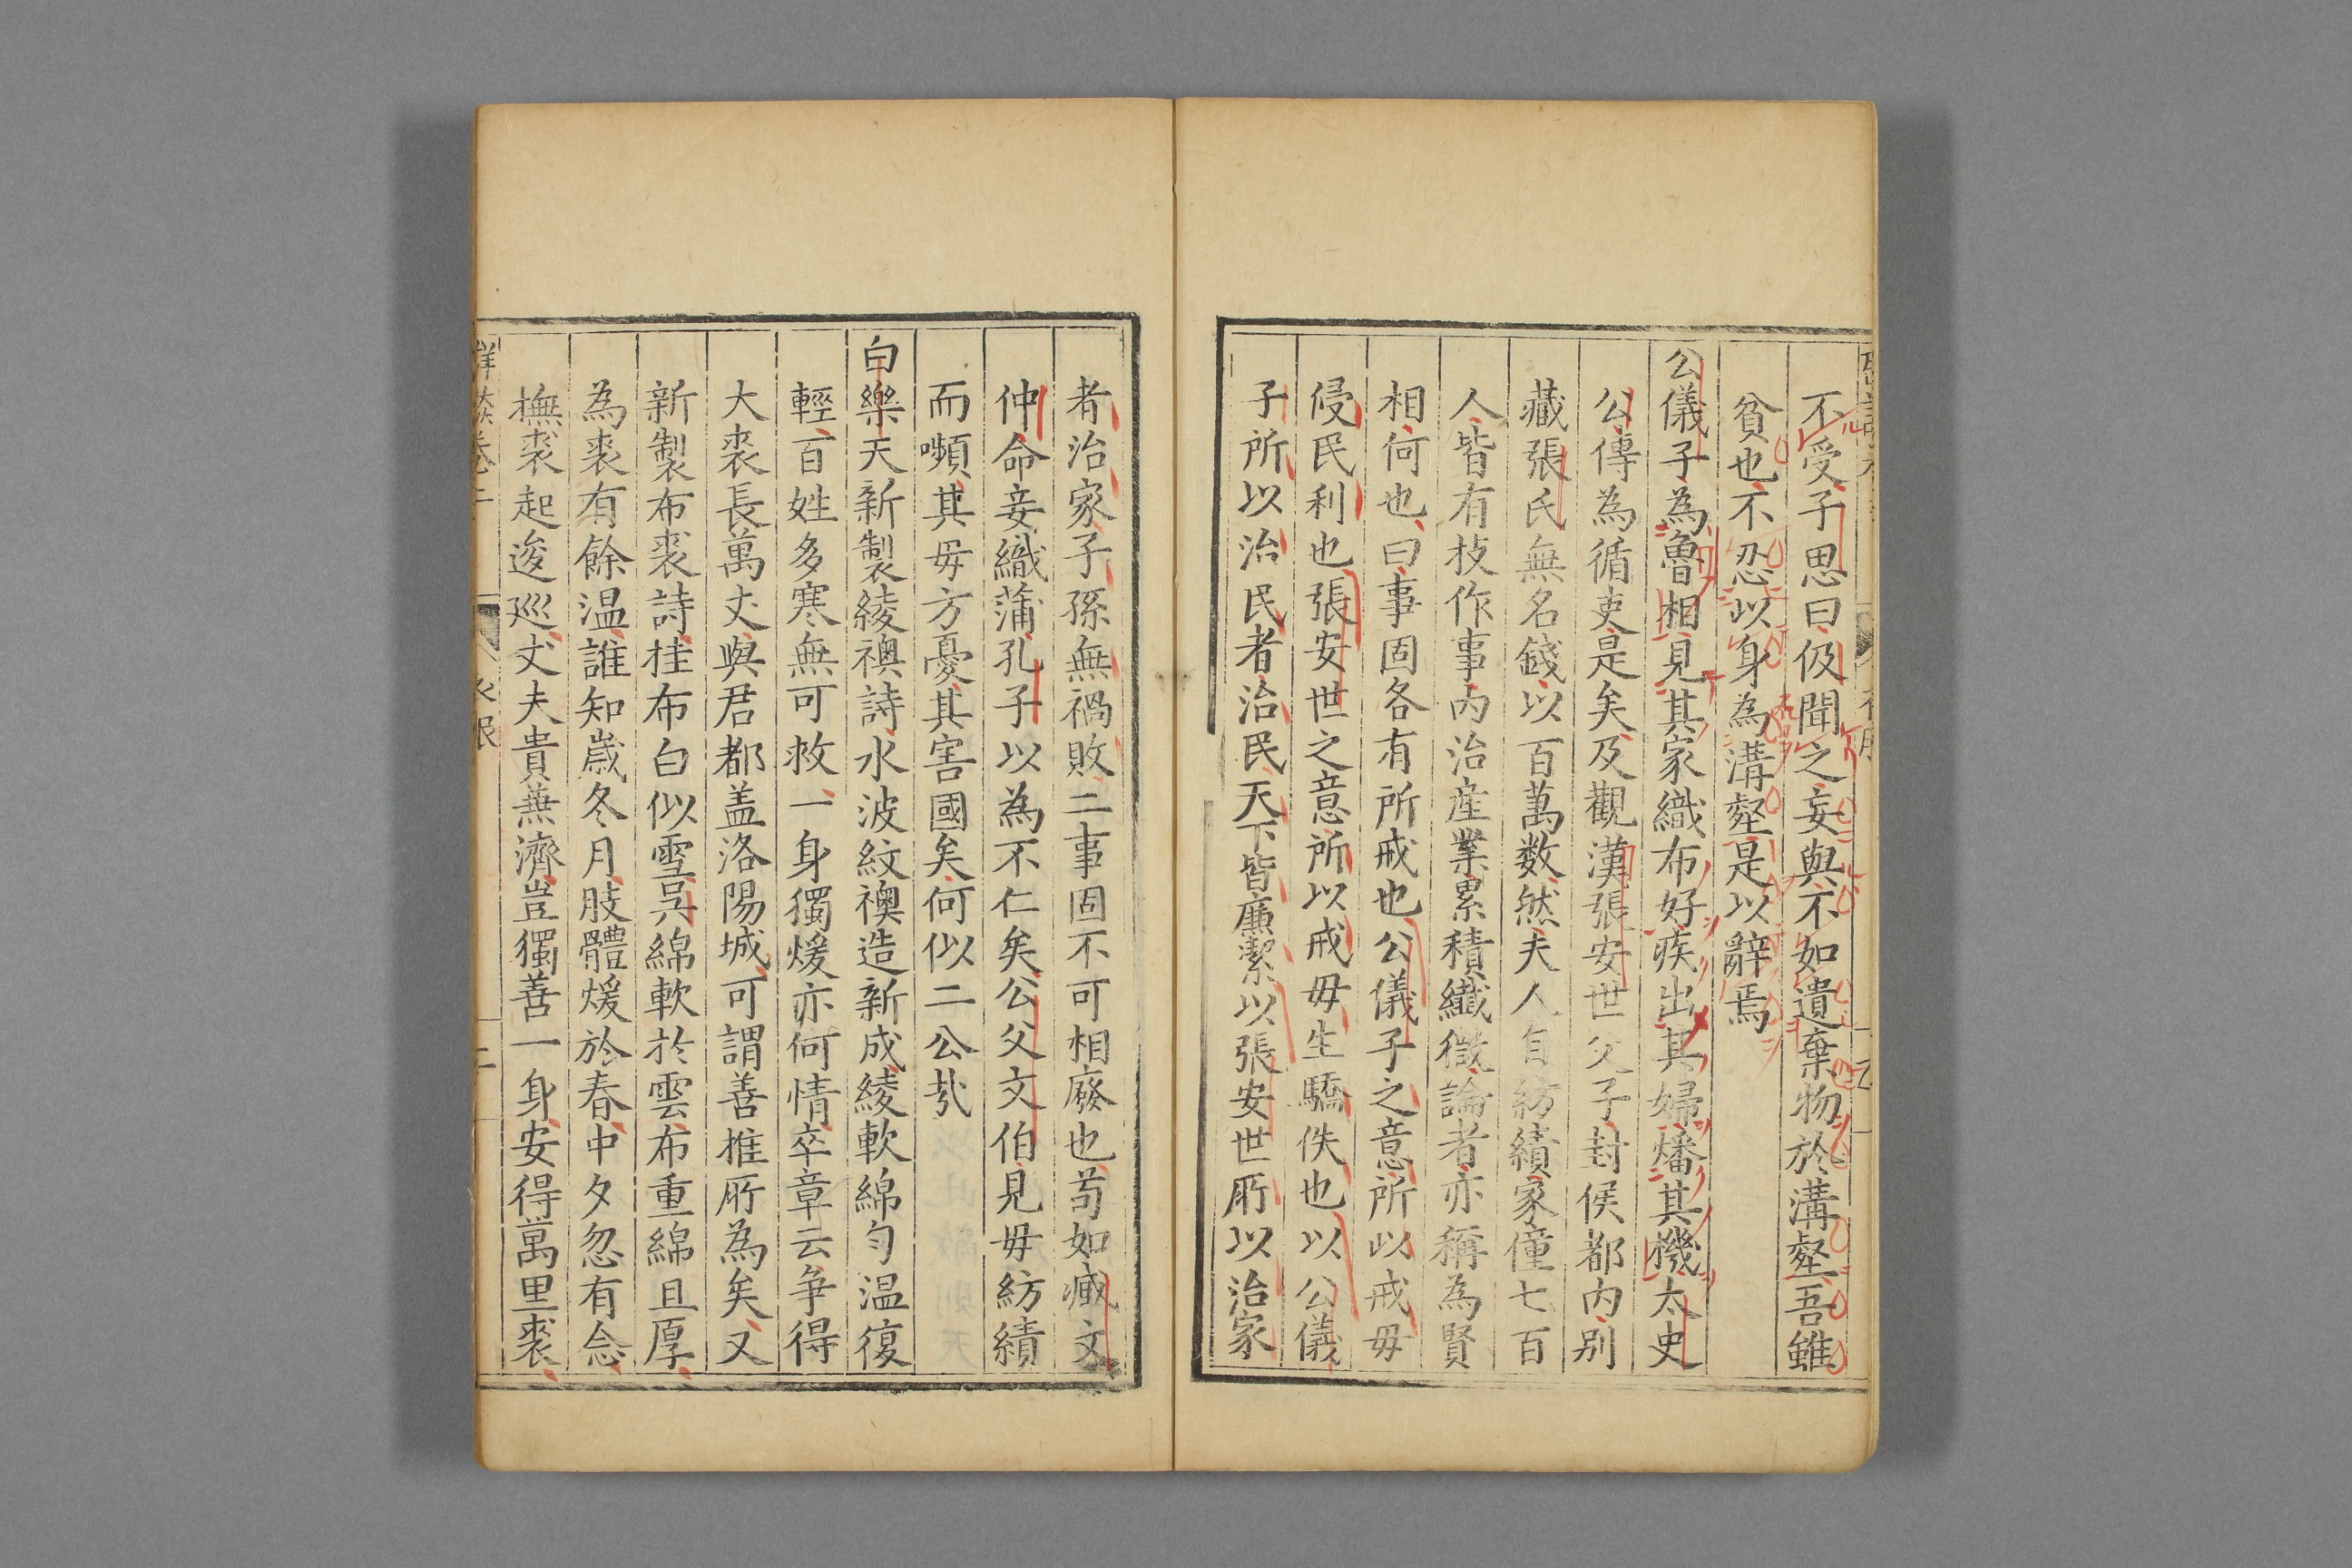 不受子思曰伋聞之妄與不如遺棄物於溝壑吾雖
貧也不忍以身為溝壑是以辭焉
公儀子為魯相見其家織布好疾出其婦燔其機太史
公傳為循吏是矣及觀漢張安世父子封侯都内別
藏張氏無名錢以百萬数然夫人自紡績家僮七百
人皆有技作事内治産業累積纖微論者亦稱為賢
相何也曰事固各有所戒也公儀子之意所以戒毋
侵民利也張安世之意所以戒毋生驕佚也以公儀
子所以治民者治民天下皆廉潔以張安世所以治家
者治家子孫無禍敗二事固不可相廢也苟如臧文
仲命妾織蒲孔子以為不仁矣公父文伯見毋紡績
而嚬其毋方憂其害國矣何似二公㢤
白樂天新製綾襖詩水波紋襖造新成綾軟綿勻温復
輕百姓多寒無可救一身獨煖亦何情卒章云争得
大裘長萬丈與君都盖洛陽城可謂善推所為矣又
新製布裘詩桂布白似雪吳綿軟於雲布重綿且厚
為裘有餘温誰知歲冬月肢體煖於春中夕忽有念
撫裘起逡巡丈夫貴蕪濟豈獨善一身安得萬里裘